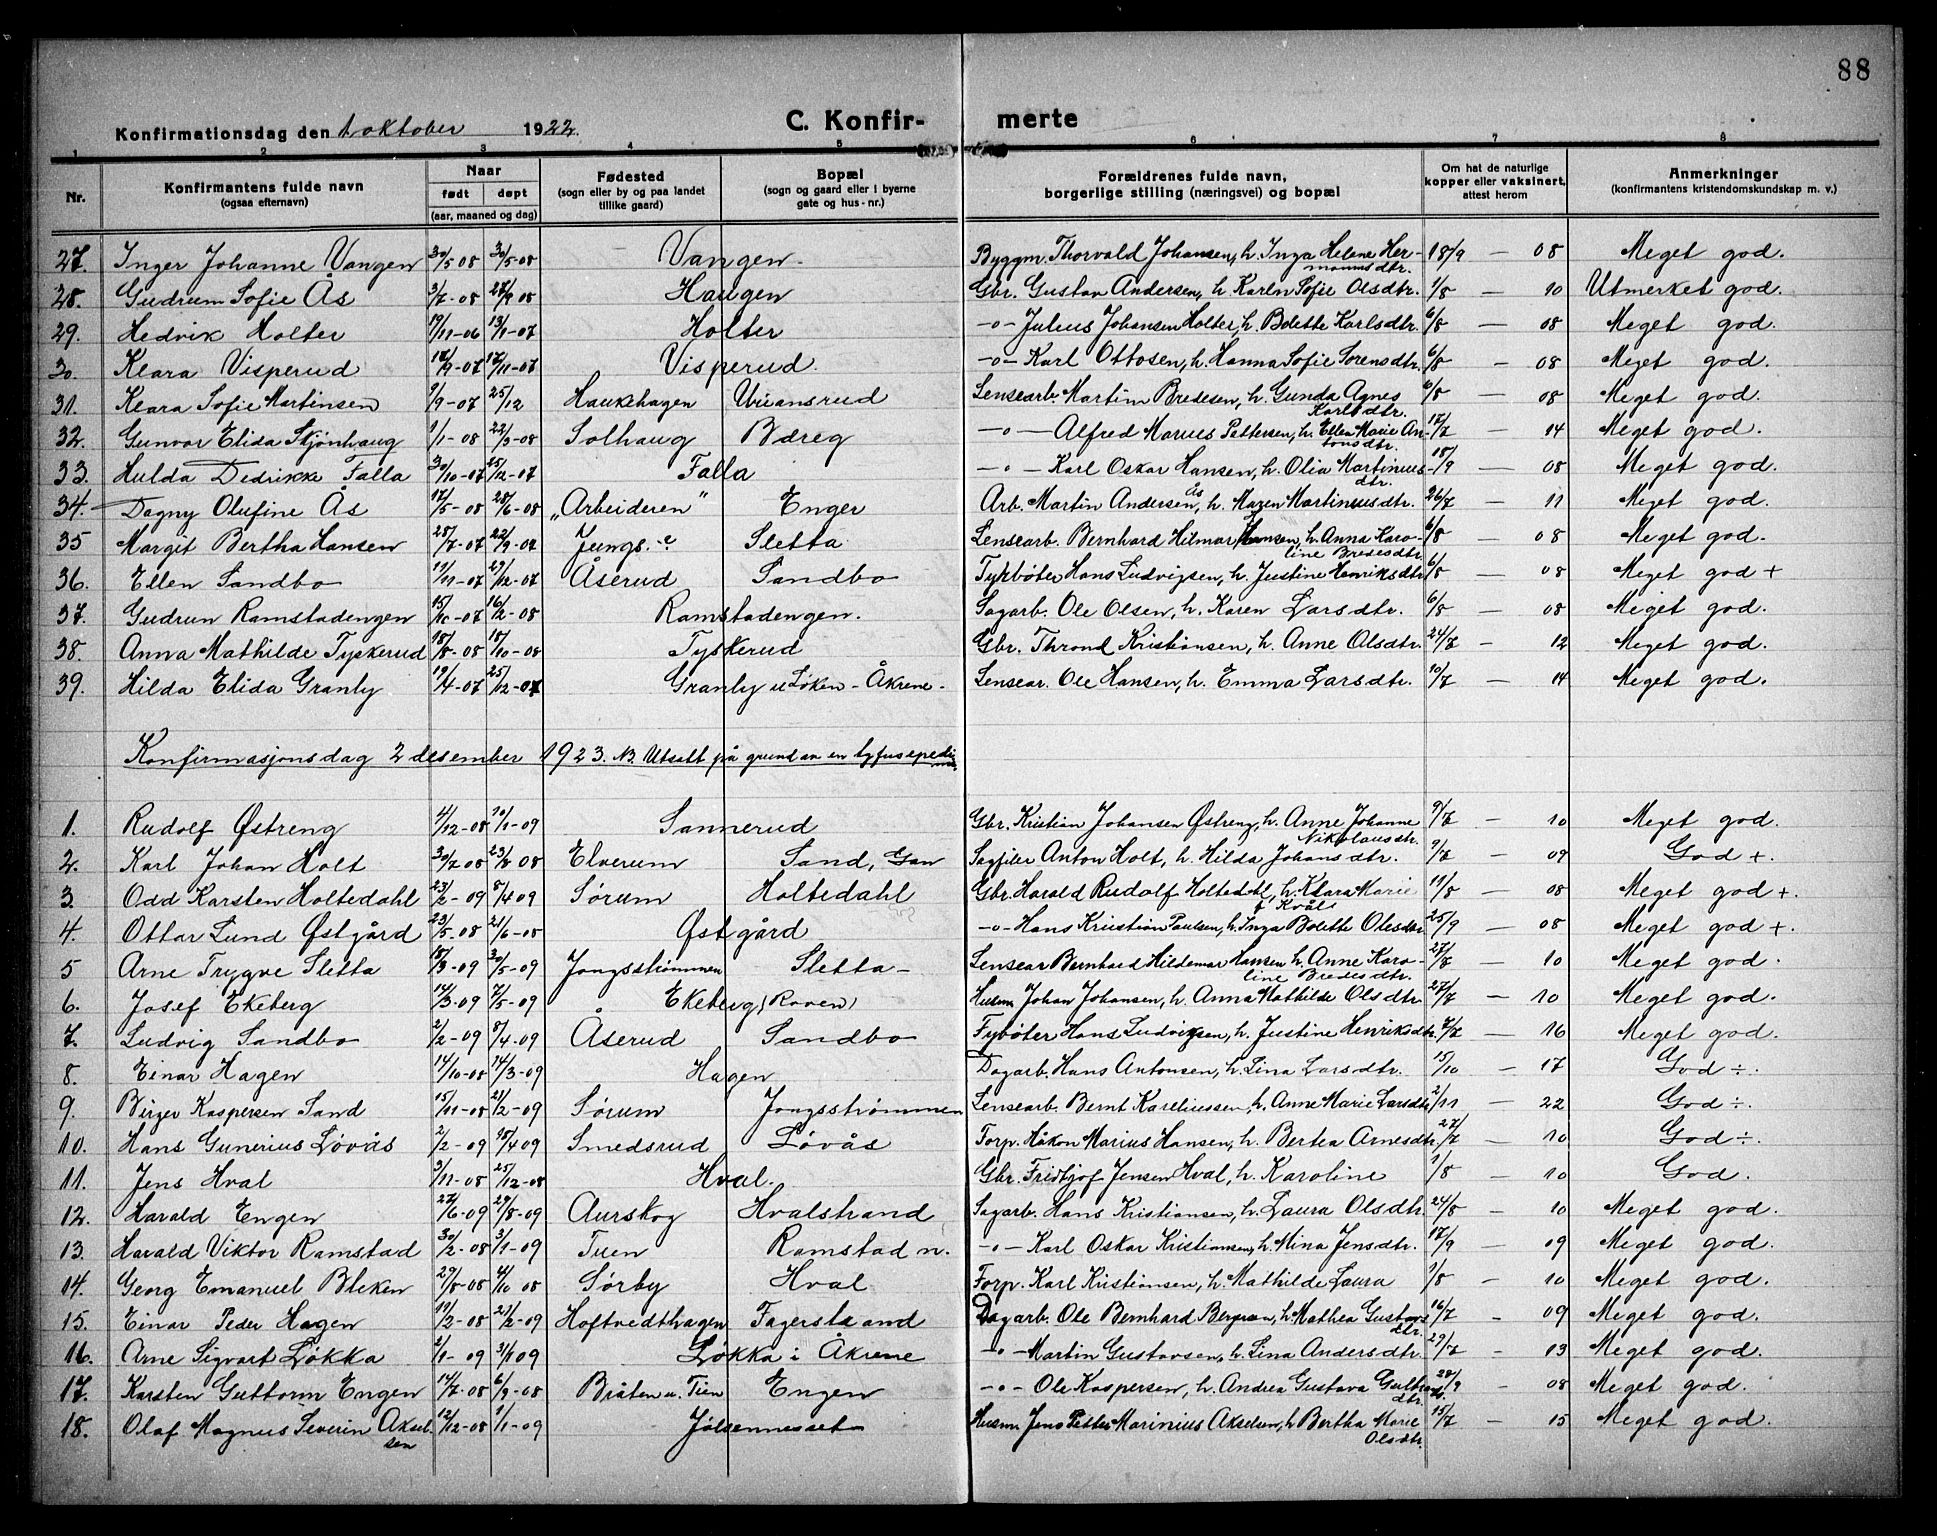 88
Konfirmationsdag den 1 oktober 1922. C. Konfir- merte
1 2 3 4 5 6 7 8
Nr. Konfirmantens fulde navn (ogsaa efternavn) Naar født døpt (aar, maaned og dag) Fødested (sogn eller by og paa landet tillike gaard) Bopæl (sogn og gaard eller i byerne gate og hus-nr.) Forældrenes fulde navn, borgerlige stilling (næringsvei) og bopæl Om hat de naturlige kopper eller vaksinert, attest herom Anmerkninger (konfirmantens kristendomskundskap m. v.)
27. Inger Johanne Vangen 30/5 08 30/5-08 Vangen Byggm. Thorvald Johansen, h. Inga Helene Hermannsdtr. 18/9 — 08 Meget god.
28. Gudrun Sofie Ås 3/7-08 28/9 08 Haugen Gbr. Gustav Andersen, h. Karen Sofie Olsdtr. 1/8 — 10 Utmerket god.
29. Hedvik Holter 19/11-06 13/1-07 Holter -o- Julius Johansen Holter, h. Bolette Karlsdtr. 6/8 — 08 Meget god.
30. Klara Visperud 18/9-07 17/11-07 Visperud -o- Karl Ottosen, h. Hanna Sofie Sorensdtr. 6/8 — 08 Meget god.
31. Klara Sofie Martinsen 9/9-07 25/12 Haukhagen Lensearb. Martin Bredesen, h. Gunda Agnes Karlsdtr. 6/8 — 08 Meget god.
32. Gunvor Elida Stjønhaug 1/1-08 22/3-08 Solhaug Bæreg -o- Alfred Marius Pettersen, h. Ellen Marie Antonsdtr. 17/7 — 14 Meget god.
33. Hulda Dedrikke Falla 30/10-07 25/12-07 Falla -o- Karl Oskar Hansen, h. Olia Martinusdtr. 18/9 — 08 Meget god.
34. Dagny Olufine Ås 17/5-08 28/6-08 „Arbeideren" Enger Arb. Martin Andersen Ås, h. Mazen Martinusdtr. 26/7 — 11 Meget god.
35 Margit Bertha Hansen 28/7-07 22/9-07 Sletta Lensearb. Bernhard Hilmar Hansen, h. Anna Karoline Bredesdtr. 6/8 — 08 Meget god.
36. Ellen Sandbo 11/11-07 29/12-07 Åserud Sandbo Hans Ludvigsen, h. Justine Henriksdtr. 6/8 — 08 Meget god +
37. Gudrun Ramstadengen 15/10-07 16/2-08 Ramstadengen. Sagarb. Ole Olsen, h. Karen Larsdtr. 6/8 — 08 Meget god.
38. Anna Mathilde Tyskerud 18/8-08 18/10-08 Tyskerud Gbr. Thrond Kristiansen, h. Anne Olsdtr. 24/7 — 12 Meget god.
39. Hilda Elida Granly 19/4-07 25/12-07 Granly u Løken - Åkrene - Lensear. Ole Hansen, h. Emma Larsdtr. 10/7 — 14 Meget god.
Konfirmasjonsdag 2 desember 1923. NB. Utsatt på grund av en tyfusepedi
1. Rudolf Østreng 4/12-08 10/1-09 Sannerud Gbr. Kristian Johansen Østreng, h. Anne Johanne Nikolausdtr. 9/7 — 10 Meget god.
2. Karl Johan Holt 30/7 08 23/8 08 Elverum Sand, Gan Sagfiler Anton Holt, h. Hilda Johansdtr. 9/7 — 09 God +.
3 Odd Karsten Holtedahl 23/2-09 8/4 09 Sørum Holtedahl Gbr. Harald Rudolf Holtedahl, h. Klara Marie f. Kvåle 11/8 — 08 Meget god +.
4. Ottar Lund Østgård 23/5-08 21/6-08 Østgård -o- Hans Kristian Paulsen, h. Inga Bolette Olesdtr. 25/9 — 08 Meget god +.
5 Arne Trygve Sletta 18/3-09 30/5-09 Jongsstrømmen Sletta - Lensear Bernhard Hildemar Hansen h. Anne Karoline Bredesdtr. 27/8 — 10 Meget god.
6. Josef Ekeberg 14/3-09 7/5-09 Ekeberg (Roven) Husm Johan Johansen, h. Anna Mathilde Olsdtr. 27/7 — 10 Meget god.
7. Ludvig Sandbo 2/2-09 8/4-09 Åserud Sandbo Fyrbøter Hans Ludvigsen, h. Justine Henriksdtr. 7/7 — 16 Meget god.
8. Einar Hagen 14/10-08 14/3-09 Hagen Dagarb. Hans Antonsen, h. Lina Larsdtr. 15/10 — 17 God ÷.
9. Birger Kaspersen Sand 15/11-08 21/2-09 Sørum Jongsstrømmen Lensearb. Bernt Kareliussen, h. Anne Marie Larsdtr. 2/11 — 22 God ÷.
10. Hans Gunerius Løvås 2/2-09 18/4 09 Smedsrud Løvås Forp. Håkon Marius Hansen, h. Bertea Arnesdtr. 27/7 — 10 God ÷.
11. Jens Hval 3/11-08 25/12-08 Hval. Gbr. Fridtjof Jensen Hval, h. Karoline 1/8 — 10 God.
12. Harald Engen 27/6-09 29/8-09 Aurskog Hvalstrand Sagarb. Hans Kristiansen, h. Laura Olsdtr. 24/8 — 10 Meget god.
13. Harald Viktor Ramstad 30/2-08 3/1-09 Tuen Ramstad n. -o- Karl Oskar Kristiansen, h. Mina Jensdtr. 17/9 — 09 Meget god.
14. Georg Emanuel Bleken 27/8-08 4/10 08 Sørby Hval Forp. Karl Kristiansen, h. Mathilde Laura 1/8 — 10 Meget god.
15. Einar Peder Hagen 19/2-08 21/2-09 Hoftvedthagen Fagerstrand Dagarb. Ole Bernhard Bergersen, h. Mathea Gustavsdtr. 16/7 — 09 Meget god.
16. Arne Sigvart Løkka 2/1-09 31/1 09 Løkka i Åkrene -o- Martin Gustavsen, h. Lina Andersdtr. 27/7 — 13 Meget god.
17. Karsten Guttorm Engen 14/7-08 6/9-08 Bråten u. Tien Engen -o- Ole Kaspersen, h. Andrea Gustava Gulbrandsdtr. 28/9 — 08 Meget god.
18. Olaf Magnus Severin Akselsen 12/12-08 1/1-09 Jølsenneset Husm Jens Petter Marinius Akselsen, h. Bertha Marie Olsdtr. 15/7 — 15 Meget god.